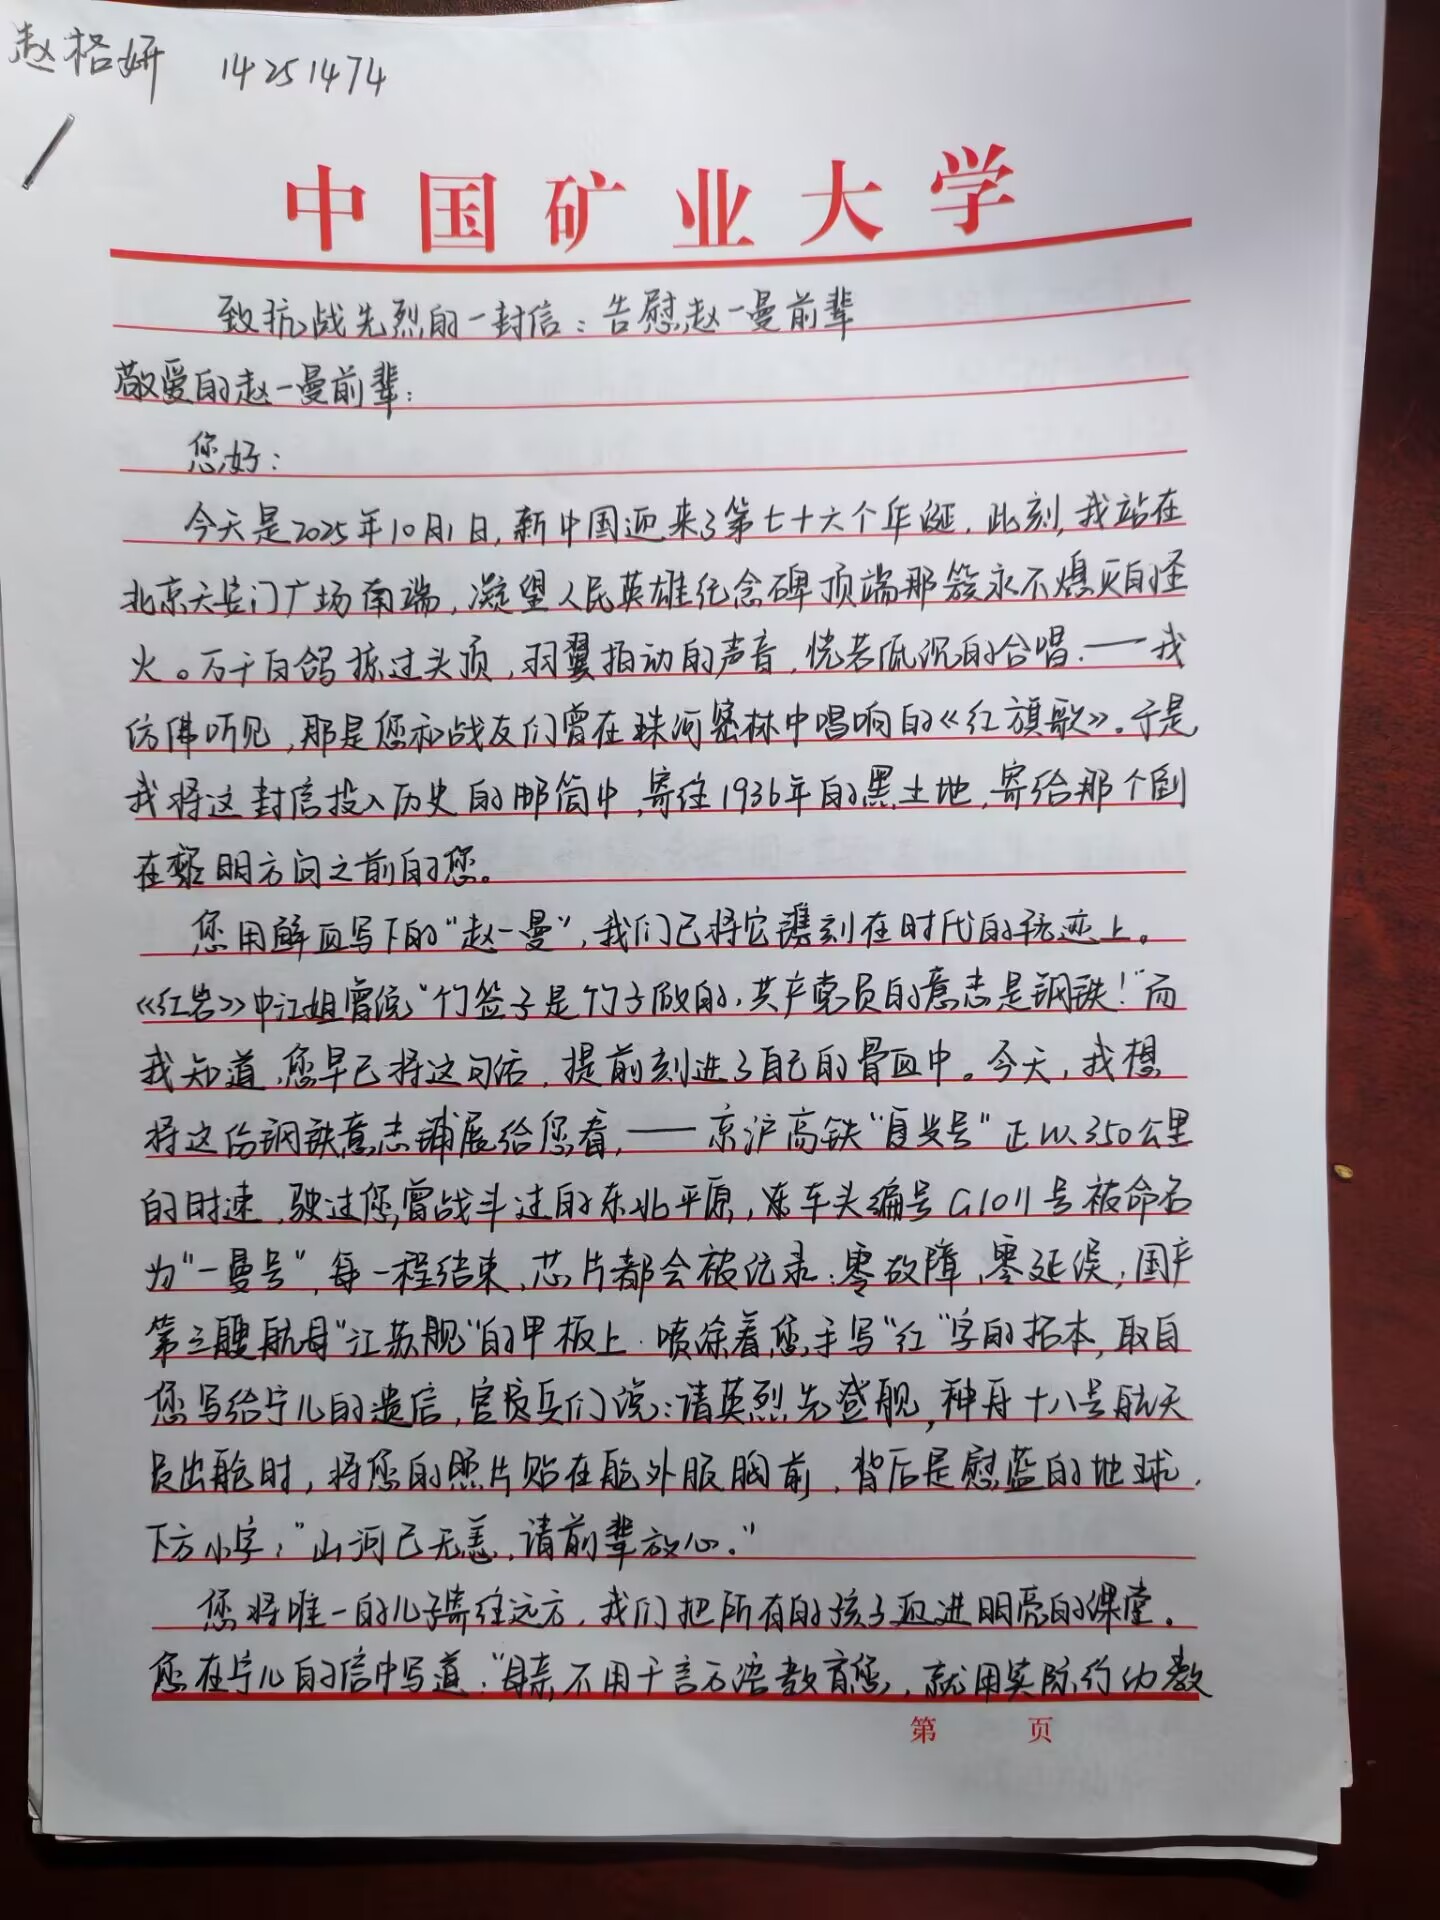 赵格妍 14251474
中国矿业大学
致抗战先烈的一封信：告慰赵一曼前辈
敬爱的赵一曼前辈：
您好：
今天是2025年10月1日,新中国迎来了第七十六个年诞,此刻,我站在
北京天安门广场南端,凝望人民英雄纪念碑顶端那簇永不熄灭的圣
火。万千白鸽掠过头顶,羽翼拍动的声音,恍若低沉的合唱.——我
仿佛听见,那是您和战友们曾在珠河密林中唱响的《红旗歌》。于是
我将这封信投入历史的邮筒中,寄往1936年的黑土地,寄给那个倒
在黎明方向之前的您。
您用鲜血写下的“赵一曼”,我们已将它镌刻在时代的轨迹上。
《红岩》中江姐曾说“竹签子是竹子做的,共产党员的意志是钢铁!”而
我知道,您早已将这句话,提前刻进了自己的骨血中。今天,我想
将这份钢铁意志铺展给您看,——京沪高铁“复兴号”正以350公里
的时速,驶过您曾战斗过的东北平原,车头编号G1011号被命名
为“一曼号”,每一程结束,芯片都会被记录:零故障,零延误,国产
第三艘航母“江苏舰”的甲板上.喷涂着您手写“红”字的拓本,取自
您写给宁儿的遗信,官兵们说:请英烈先登舰,神舟十八号航天
员出舱时,将您的照片贴在舱外服胸前,背后是慰蓝的地球,
下方小字:“山河已无恙,请前辈放心.”
您将唯一的儿子寄往远方,我们把所有的孩子迎进明亮的课堂.
您在宁儿的信中写道:“母亲不用千言万语教育您,就用实际行动教
第 页